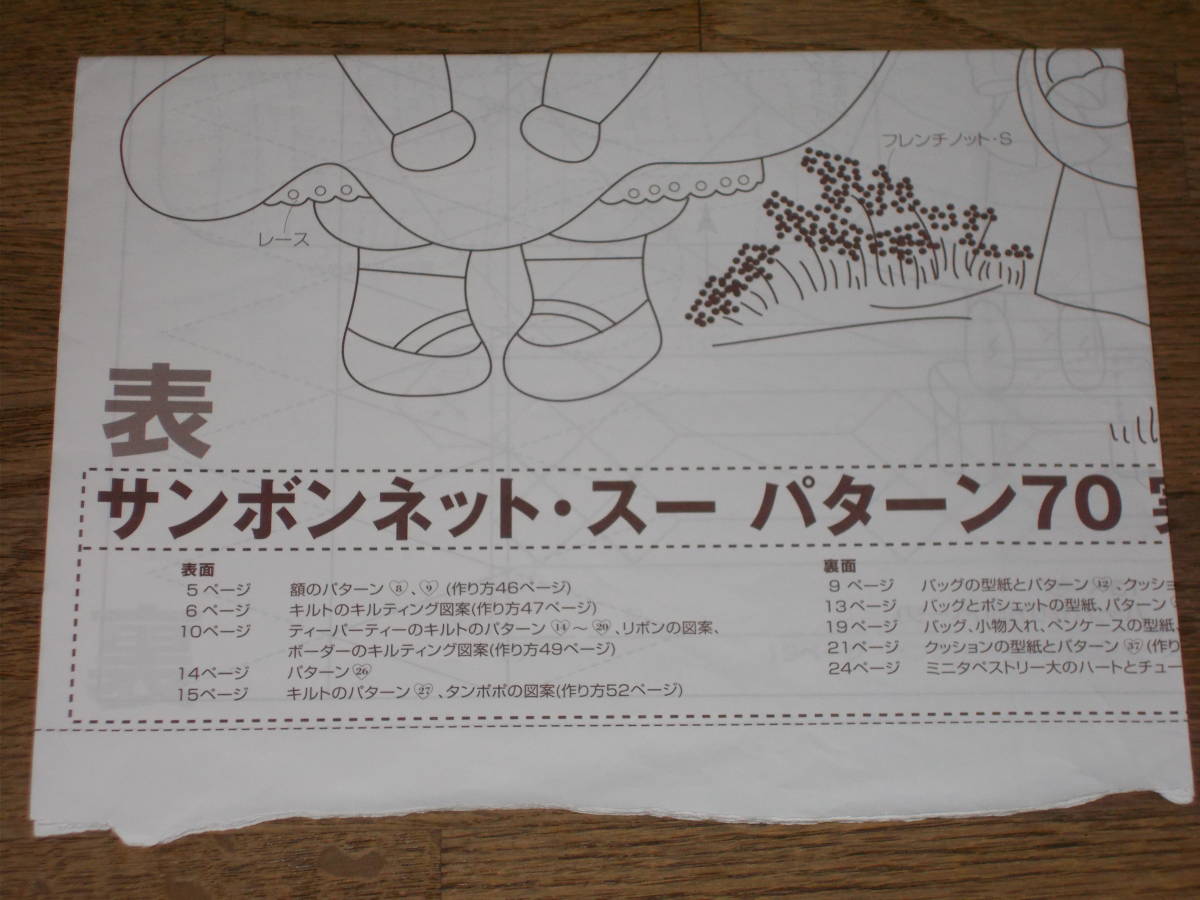 フレンチノット・S
レース
表
サンボンネット・スー パターン70
表面
5 ページ 額のパターン⑧、⑨ (作り方46ページ)
6 ページ キルトのキルティング図案(作り方47ページ)
10ページ ティーパーティーのキルトのパターン⑭～⑳、リボンの図案、
ボーダーのキルティング図案(作り方49ページ)
14ページ パターン㉖
15ページ キルトのパターン㉗、タンポポの図案(作り方52ページ)
裏面
9 ページ バッグの型紙とパターン⑫、クッショ
13ページ バッグとポシェットの型紙、パターン
19ページ バッグ、小物入れ、ペンケースの型紙
21ページ クッションの型紙とパターン㊲(作り
24ページ ミニタペストリー大のハートとチュー